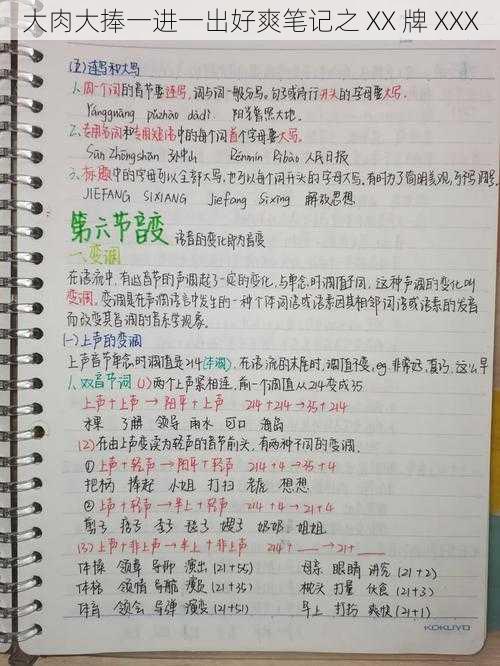 大肉大捧一进一出好爽笔记之 XX 牌 XXX
(五)连写和大写
1、同一个词的音节要连写,词与词一般分写。句子或诗行开头的字母要大写.
Yángguāng pǔzhào dàdì. 阳光普照大地.
2、专用名词和专用短语中的每个词首个字母要大写.
Sūn Zhōngshān 孙中山 Rénmín Rìbào 人民日报
3、标题中的字母可以全部大写,也可以每个词开头的字母大写.有时为了简明美观,可不写调号
JIEFANG SIXIANG Jiefang Sixiang 解放思想
第六节音变 语音的变化即为音变
一、变调
在语流中,有些音节的声调起了一定的变化,与单念时调值不同,这种声调的变化叫
变调.变调是在声调语言中发生的一种个体词语或语素因其相邻词语或语素的发音
而改变其音调的音系学现象.
(一)上声的变调
上声音节单念时调值是214(本调),在语流的末尾时,调值不变,eg.非常好.真巧.这么早
1、双音节词 (1)两个上声紧相连,前一个调值从214变成35
上声+上声→阳平+上声 214+214→35+214
水果 了解 领导 雨水 可口 海岛
(2)在由上声变读为轻声的音节前头,有两种不同的变调.
①上声+轻声→阳平+轻声 214+4→35+4
把柄 捧起 小姐 打扫 老虎 想想
②上声+轻声→半上+轻声 214+4→21+4
剪子 椅子 李子 毯子 嫂子 奶奶 姐姐
(3)上声+非上声→半上+非上声 214+ __ →21+ __
体操 领导 导师 演出 (21+55) 母亲 眼睛 讲究 (21+2)
体格 领情 导航 演员 (21+35) 枕头 打量 伙食 (21+3)
体育 领会 导弹 演变 (21+51) 马上 打扮 爽快 (21+1)
KOKUYO